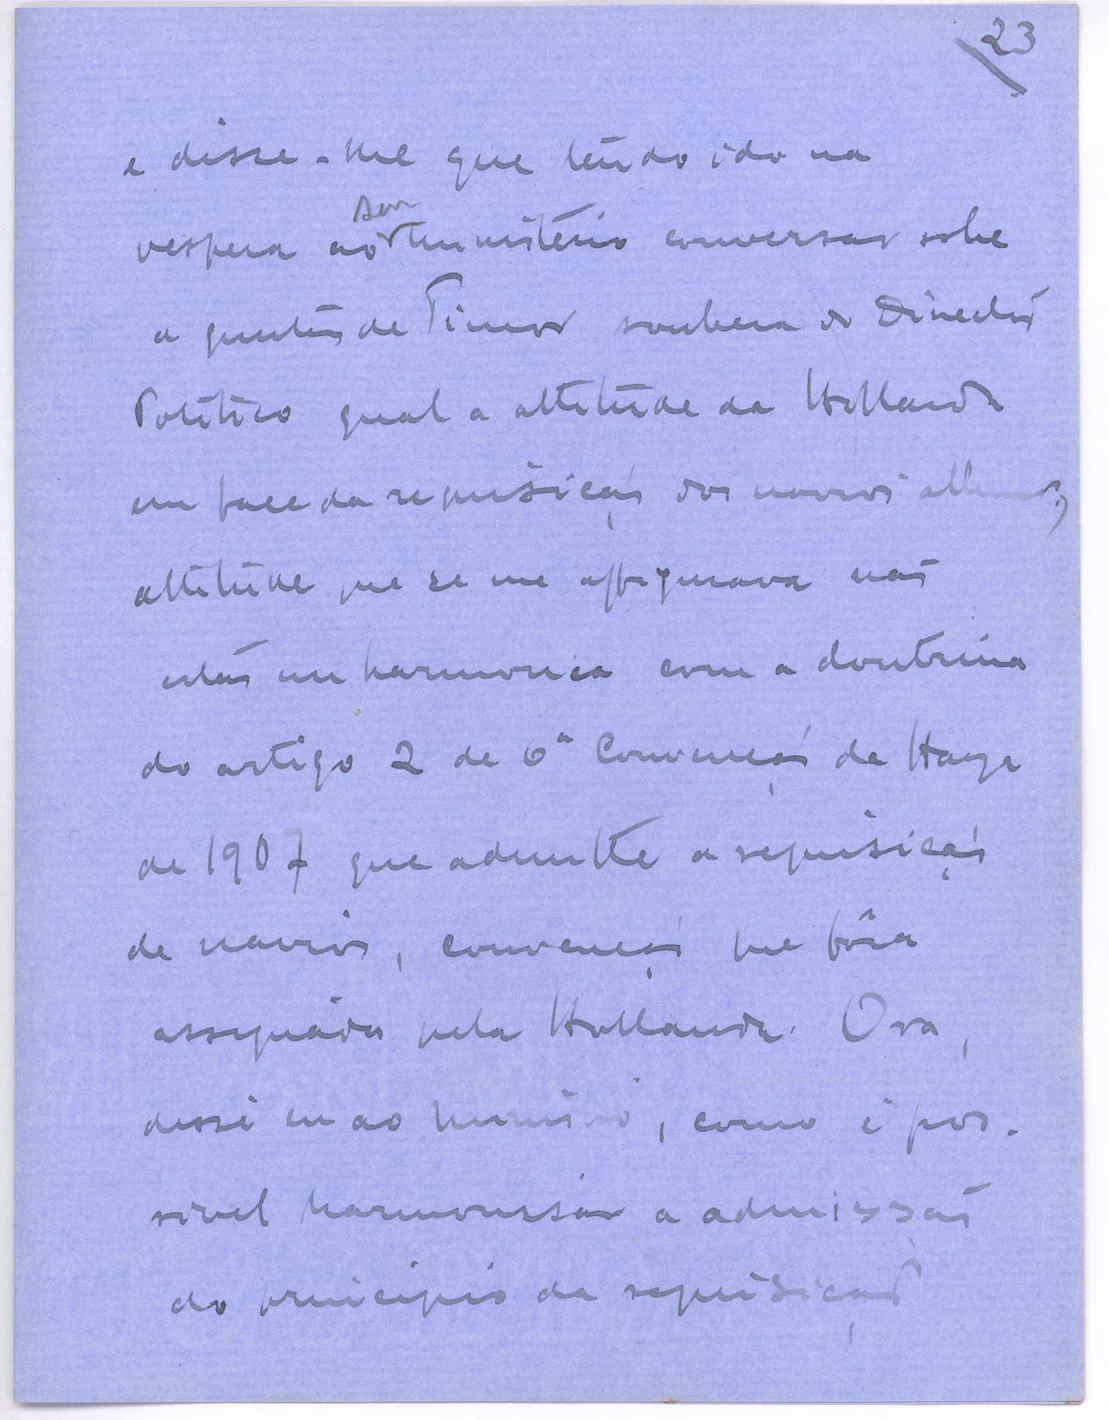 23
e disse-me que tendo ido na
vespera ao seu Ministério conversar sobre
a questão de Timor soubera do Director
Politico qual a attitude da Hollanda
em face da requisição dos navios allemães,
attitude que se me affigurava não
estar em harmonia com a doutrina
do artigo 2 da 6ª Convenção da Haya
de 1907 que admitte a requisição
de navios, convenção que fôra
assignada pela Hollanda. Ora,
disse eu ao Ministro, como é pos-
sivel harmonisar a admissão
do principio da requisição